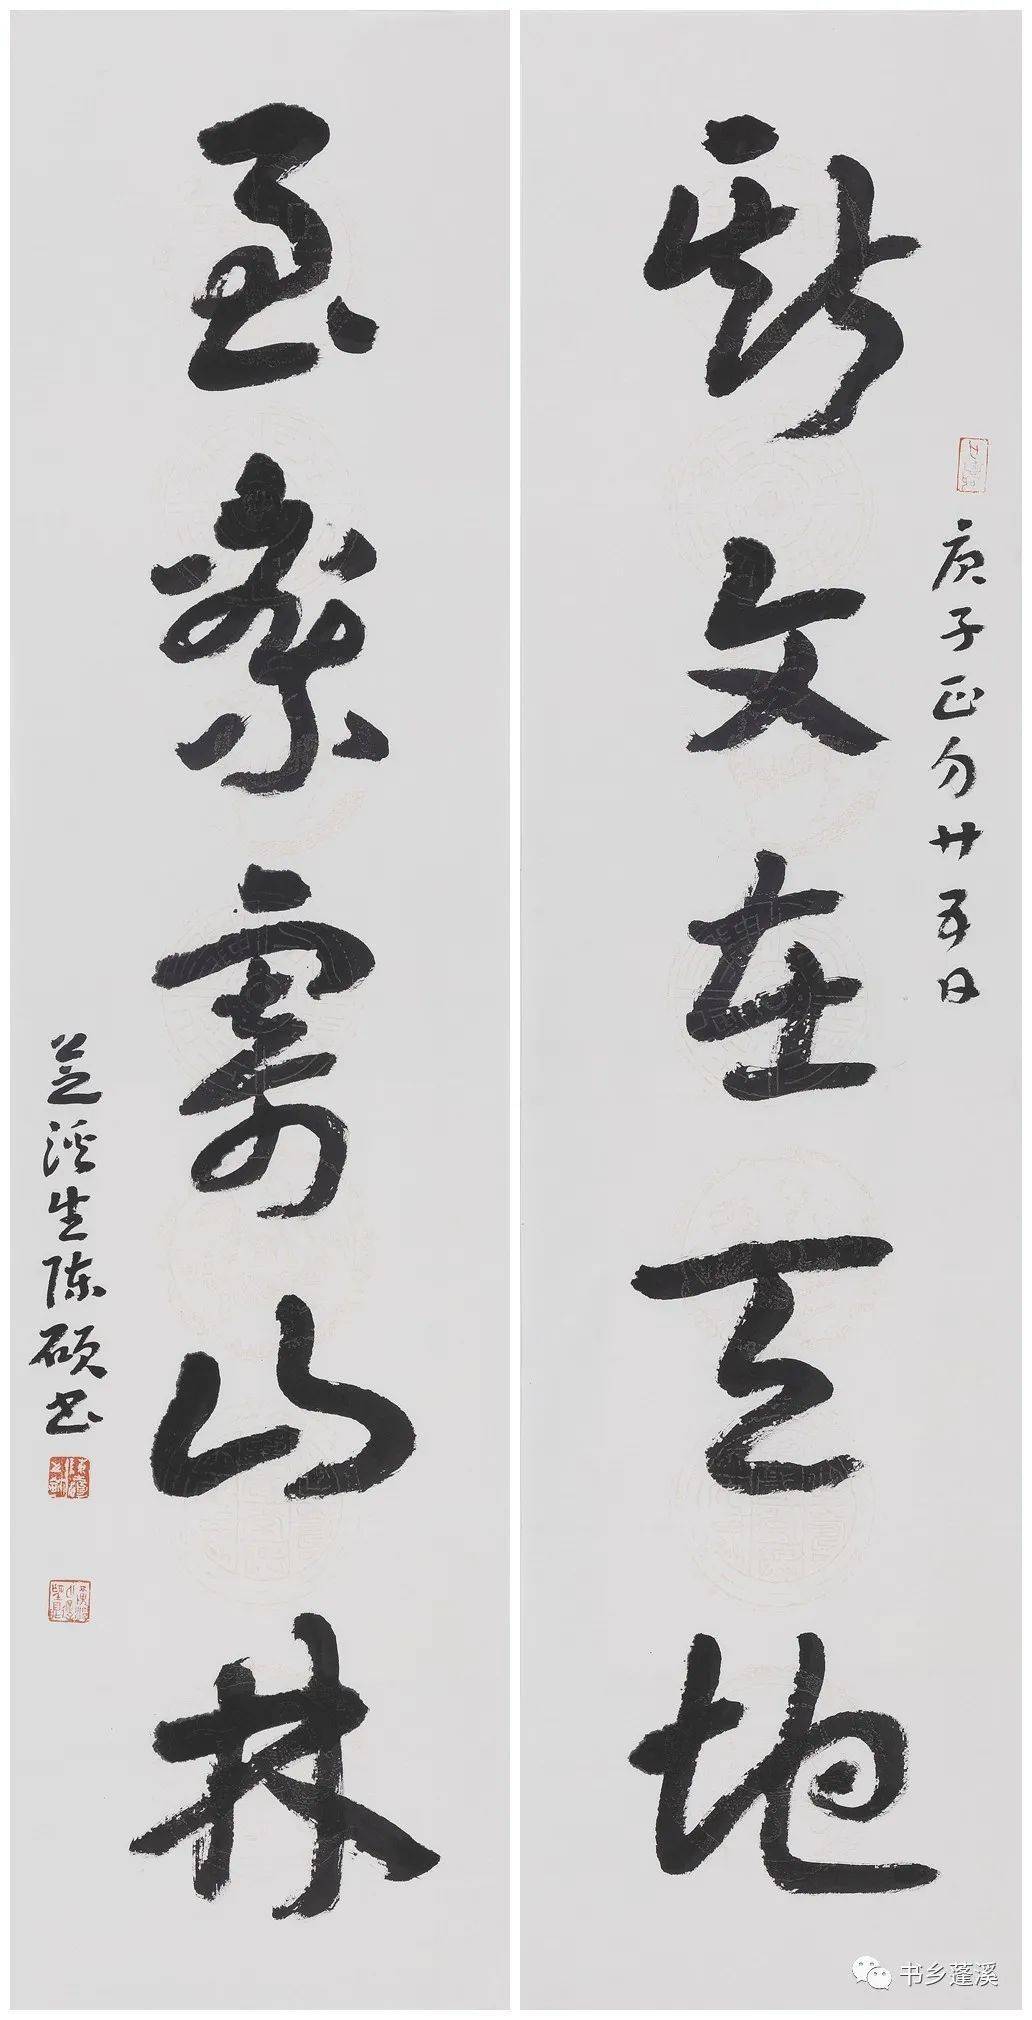 斯文在天地
庚子正月廿五日
至乐寄山林
芝溪生陈硕书
书乡蓬溪